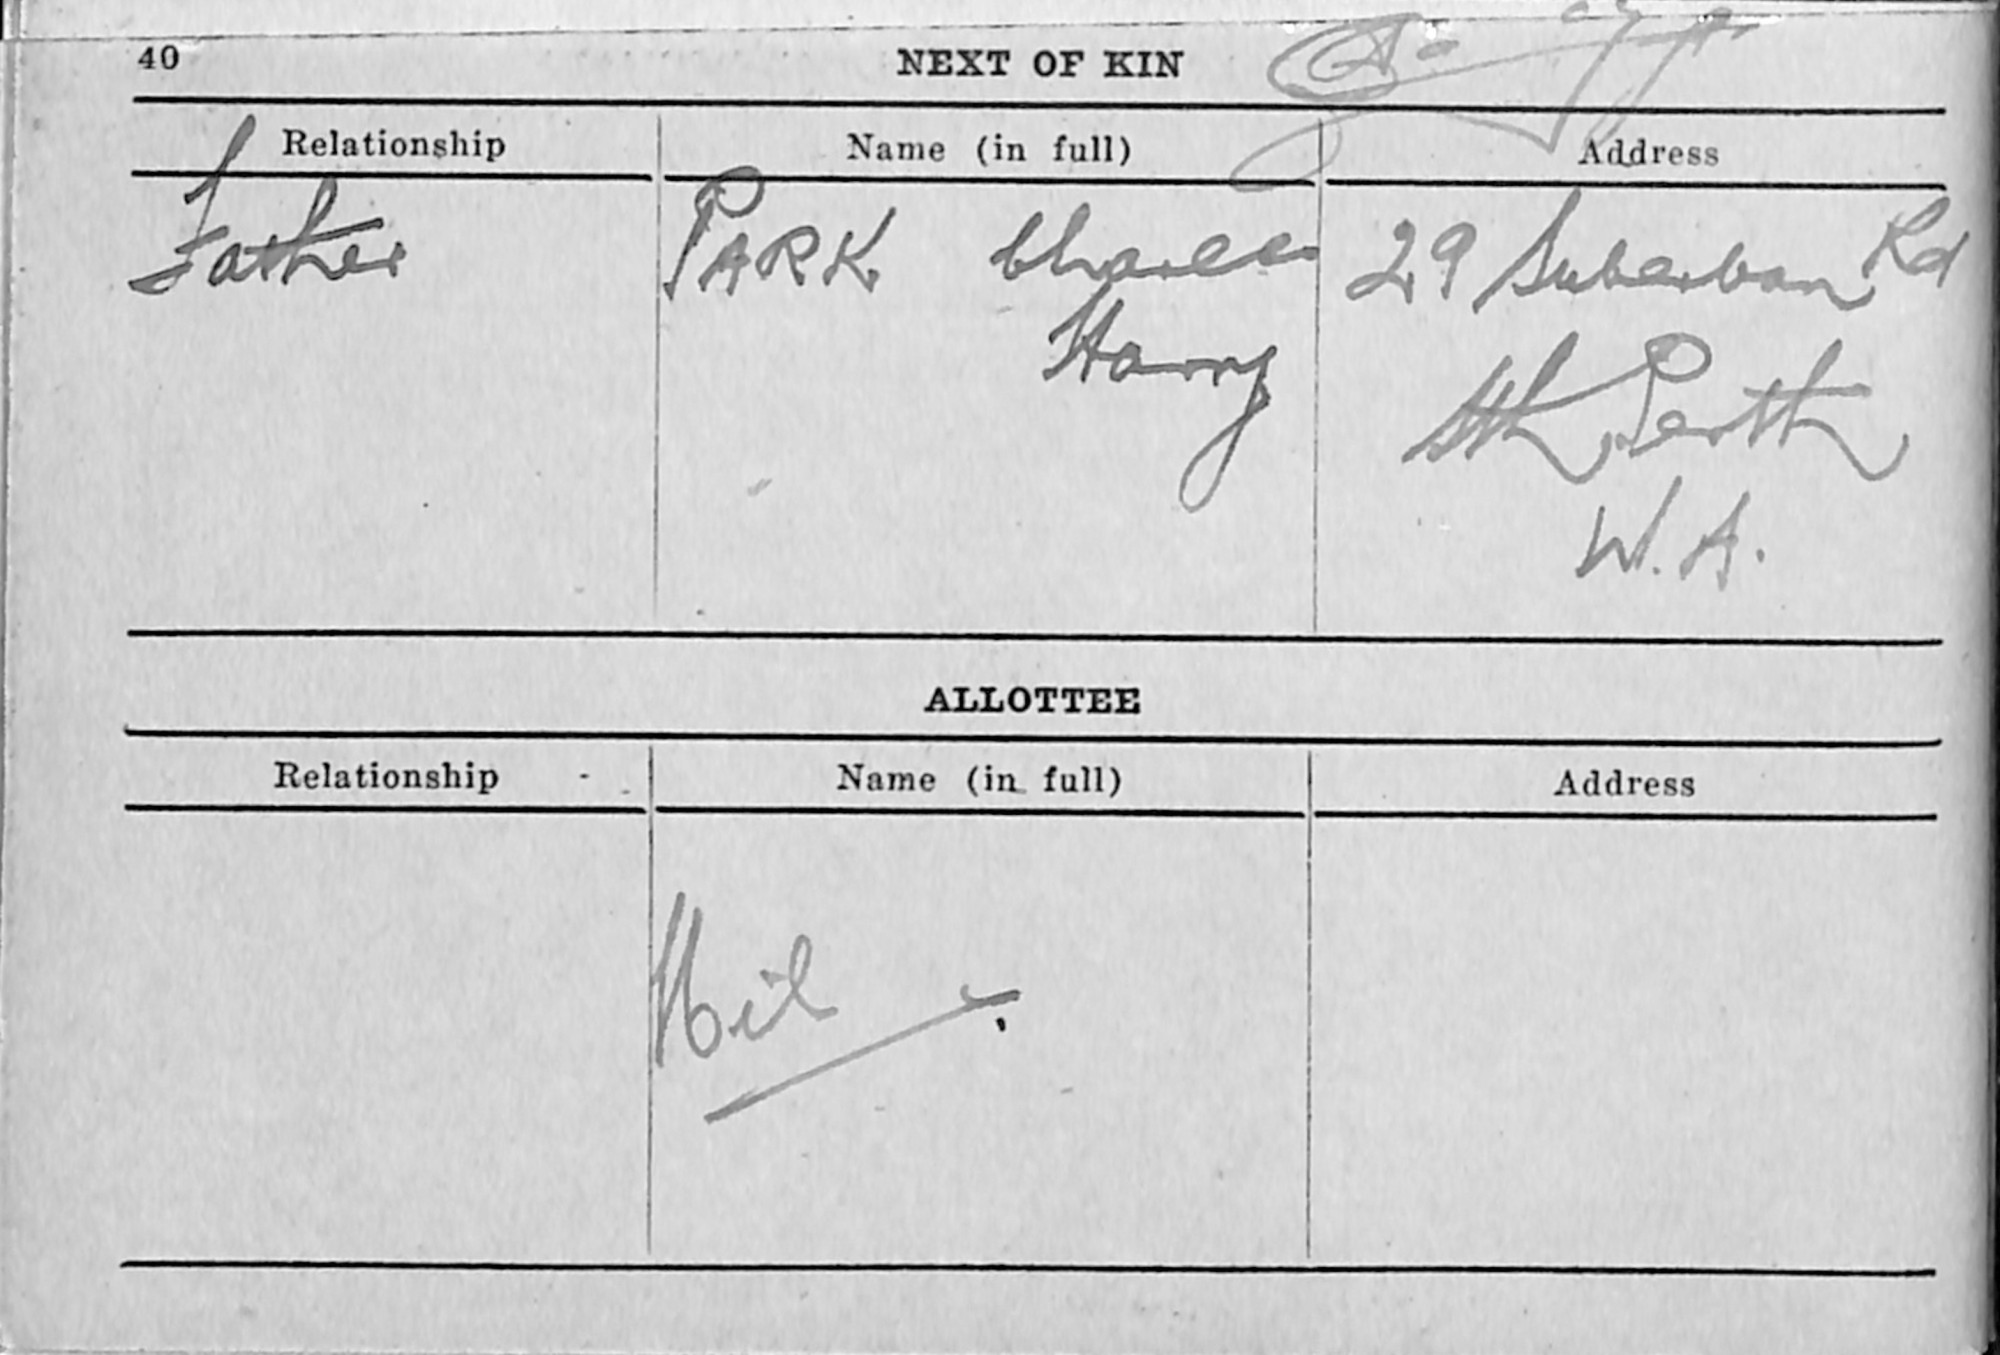 40
NEXT OF KIN
Relationship Name (in full) Address
Father PARK Charles 29 Suburban Rd
Harry
Sth Perth
W.A.
ALLOTTEE
Relationship Name (in full) Address
Nil